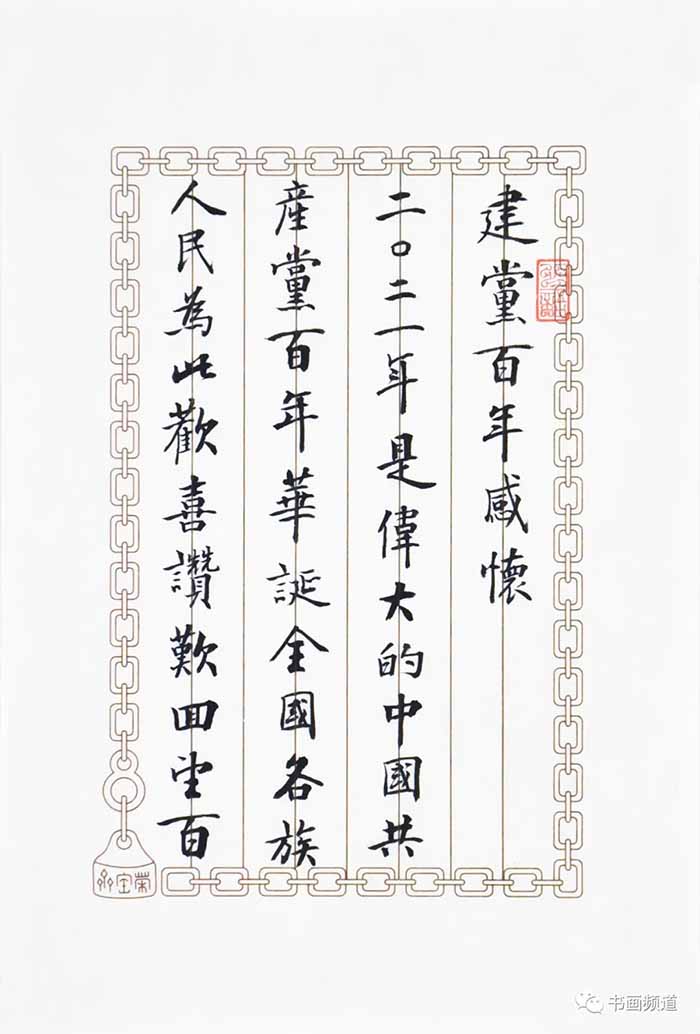 建黨百年感懷
二〇二一年是偉大的中國共
産黨百年華誕全國各族
人民為此歡喜讚歎回望百
榮宝斋
书画频道